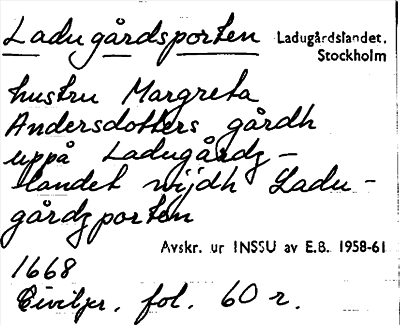 Ladugårdsporten Ladugårdslandet.
Stockholm
hustru Margreta
Andersdotters gårdh
uppå Ladugårdz-
landet wijdh Ladu-
gårdzporten
Avskr. ur INSSU av E.B. 1958-61
1668
Civilpr. fol. 60 r.